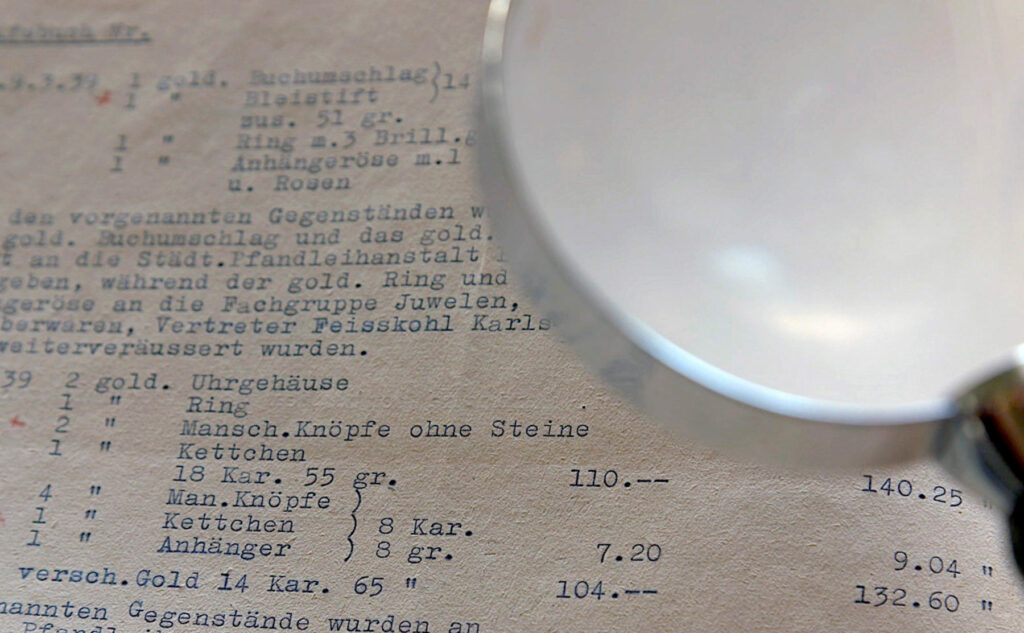 Nr.
9.3.39 1 gold. Buchumschlag)14
1 " Bleistift
zus. 51 gr.
1 " Ring m.3 Brill.g
1 " Anhängeröse m.1
u. Rosen
den vorgenannten Gegenständen w
gold. Buchumschlag und das gold.
t an die Städt.Pfandleihanstalt
geben, während der gold. Ring und
geröse an die Fachgruppe Juwelen,
berwaren, Vertreter Feisskohl Karls
weiterveräussert wurden.
39 2 gold. Uhrgehäuse
1 " Ring
2 " Mansch.Knöpfe ohne Steine
1 " Kettchen
18 Kar. 55 gr. 110.-- 140.25 "
4 " Man.Knöpfe )
1 " Kettchen ) 8 Kar.
1 " Anhänger ) 8 gr. 7.20 9.04 "
versch.Gold 14 Kar. 65 " 104.-- 132.60 "
nannten Gegenstände wurden an